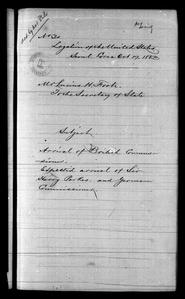 No 30
Legation of the United States
Seoul Corea Oct 19, 1883
Mr Lucius H. Foote
To the Secretary of State
Subject.
Arrival of British Commis-
sioner.
Expected arrival of Sir
Harry Parkes and German
Commissioner